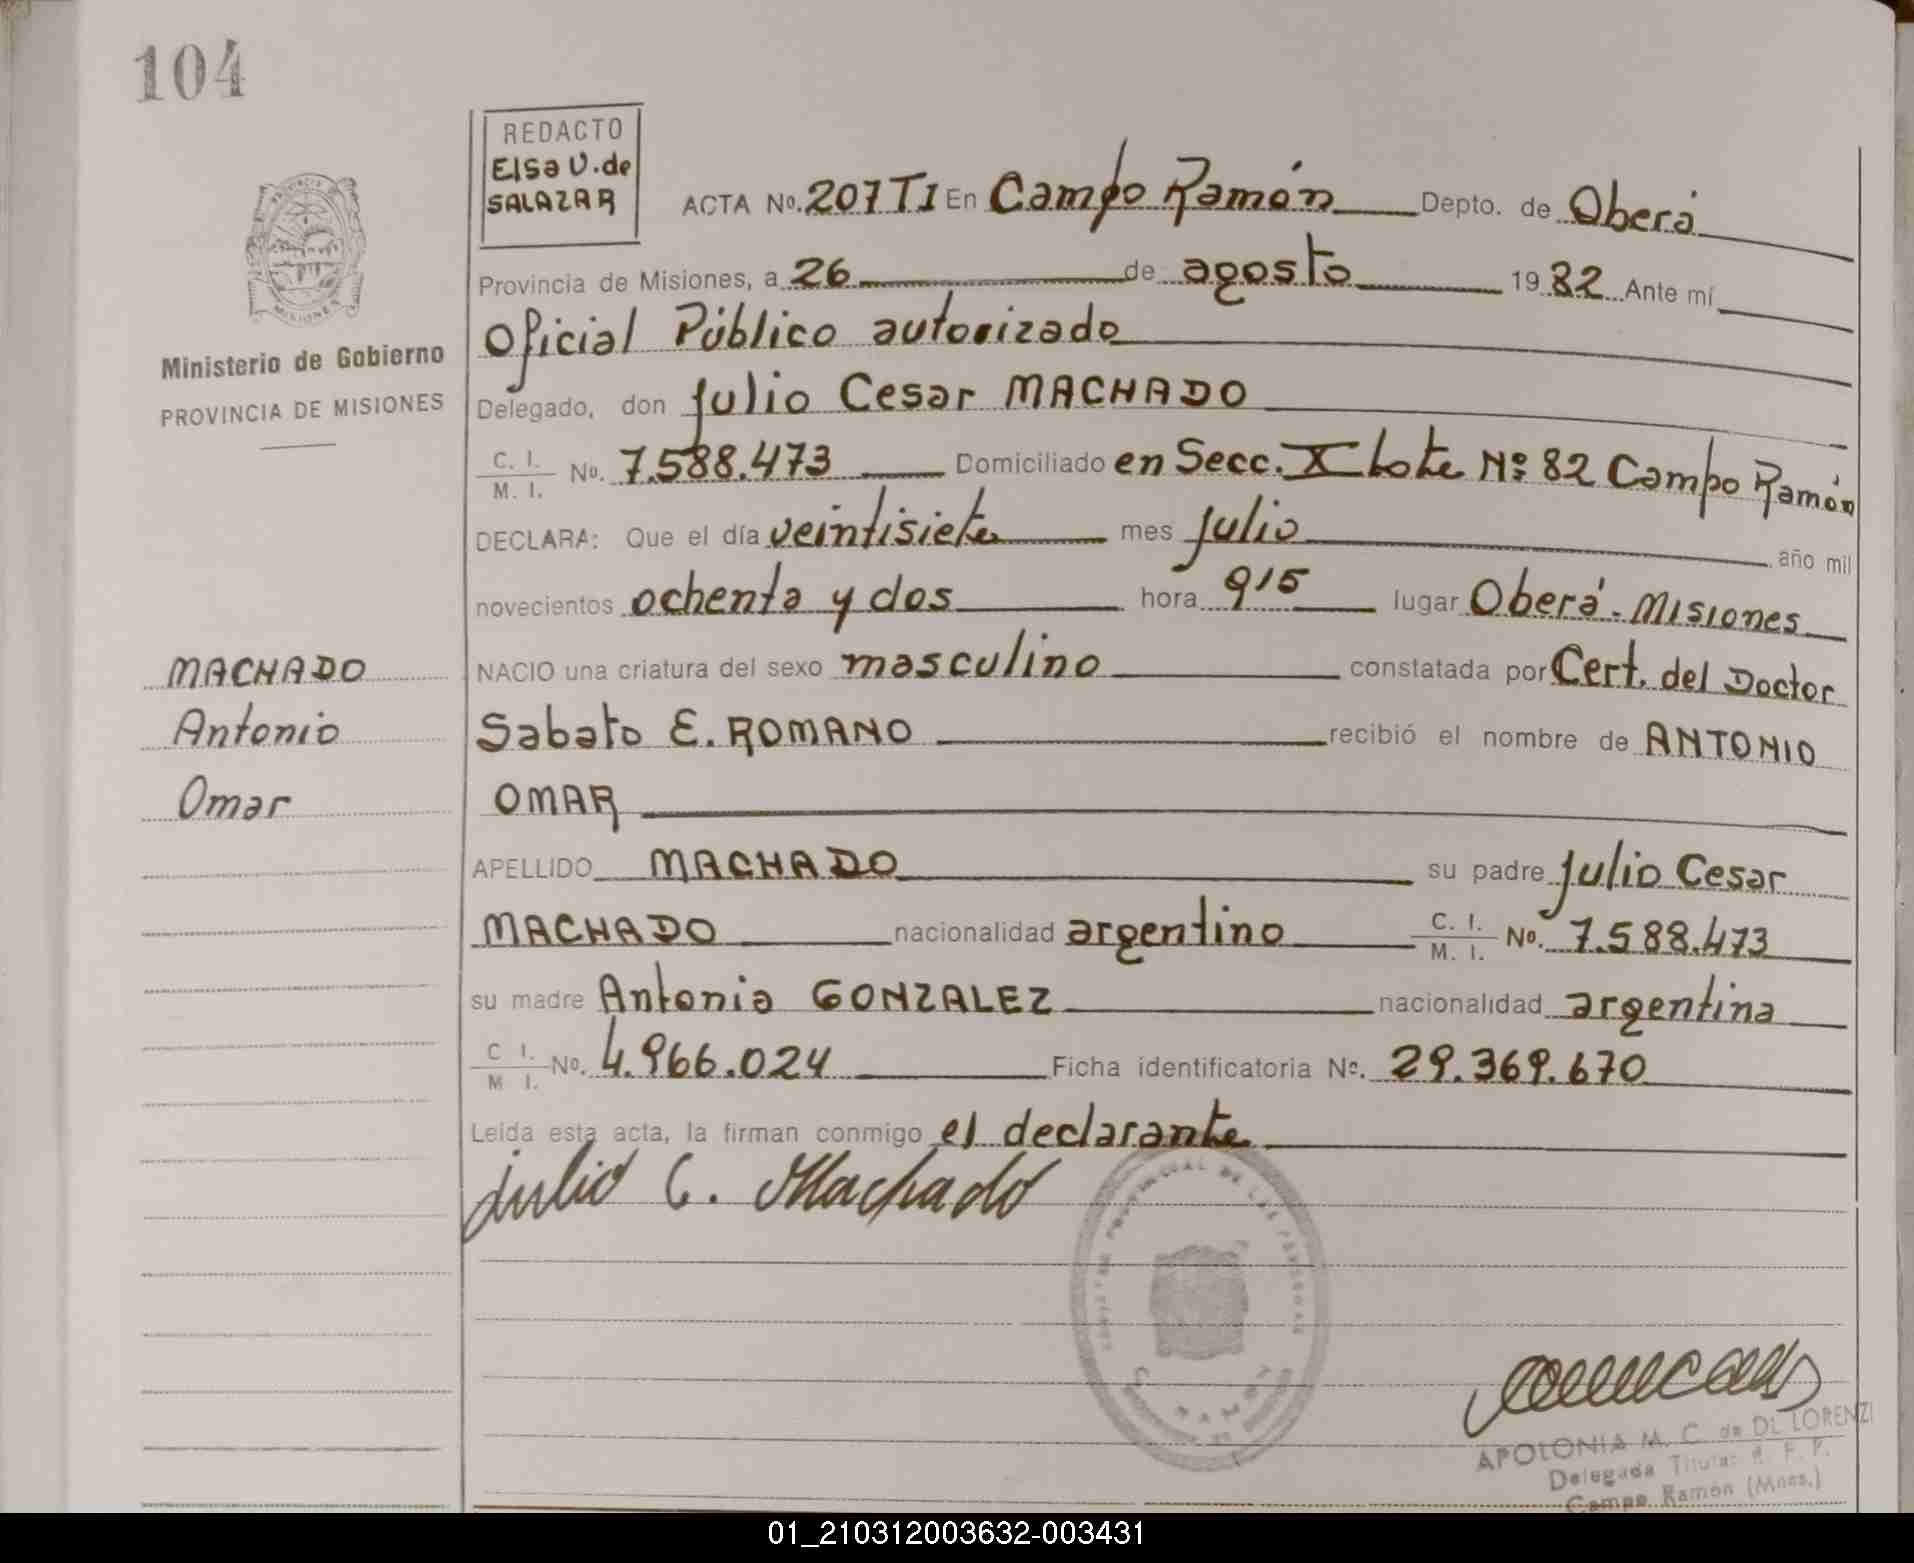 104
REDACTO
Elsa V. de
SALAZAR
ACTA No. 207 TI En Campo Ramón Depto. de Oberá
Provincia de Misiones, a 26 de agosto 1982 Ante mí
Oficial Público autorizado
Ministerio de Gobierno
PROVINCIA DE MISIONES
Delegado, don Julio Cesar MACHADO
C. I. M. I. No. 7.588.473 Domiciliado en Secc. X Lote Nº 82 Campo Ramón
DECLARA: Que el día veintisiete mes Julio año mil
novecientos ochenta y dos hora 915 lugar Oberá - Misiones
MACHADO
Antonio
Omar
NACIO una criatura del sexo masculino constatada por Cert. del Doctor
Sabato E. ROMANO recibió el nombre de ANTONIO
OMAR
APELLIDO MACHADO su padre Julio Cesar
MACHADO nacionalidad argentino C. I. M. I. No. 7.588.473
su madre Antonia GONZALEZ nacionalidad argentina
C I. M I. No. 4.966.024 Ficha identificatoria No. 29.369.670
Leida esta acta, la firman conmigo el declarante
Julio C. Machado
APOLONIA M. C. de DL LORENZI
Delegada Titular R. P. P.
Campo Ramón (Mnes.)
01_210312003632-003431